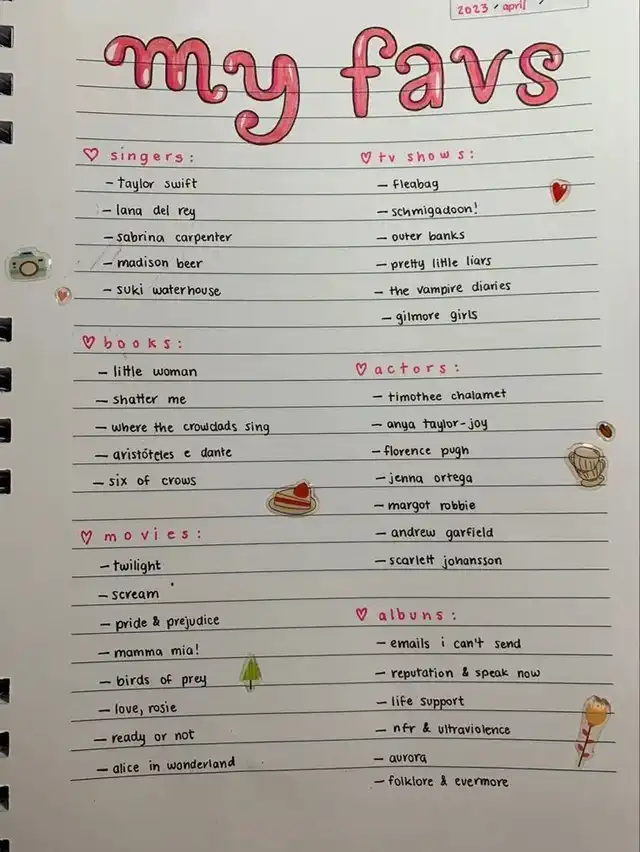 2023 / april /
my favs
singers:
- taylor swift
- lana del rey
- sabrina carpenter
- madison beer
- suki waterhouse
books:
- little woman
- shatter me
- where the crowdads sing
- aristóteles e dante
- six of crows
movies:
- twilight
- scream
- pride & prejudice
- mamma mia!
- birds of prey
- love, rosie
- ready or not
- alice in wonderland
tv shows:
- fleabag
- schmigadoon!
- outer banks
- pretty little liars
- the vampire diaries
- gilmore girls
actors:
- timothee chalamet
- anya taylor-joy
- florence pugh
- jenna ortega
- margot robbie
- andrew garfield
- scarlett johansson
albuns:
- emails i can't send
- reputation & speak now
- life support
- nfr & ultraviolence
- aurora
- folklore & evermore